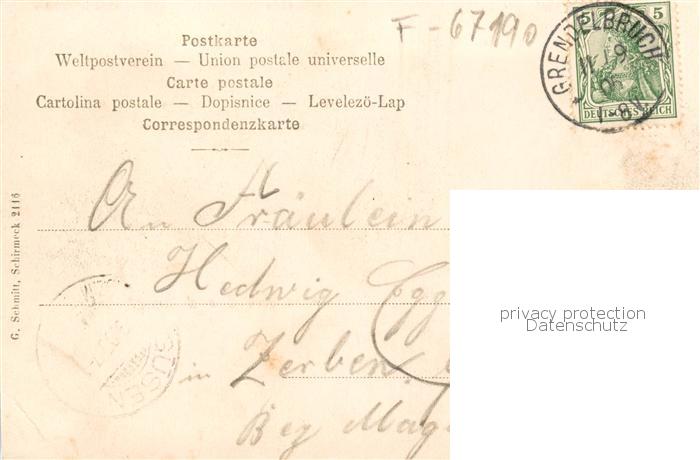 F-67190
Postkarte
Weltpostverein — Union postale universelle
Carte postale
Cartolina postale — Dopisnice — Levelező-Lap
Correspondenzkarte
5 5
DEUTSCHES REICH
GRENDELBRUCH
G. Schmitt, Schirmeck 2116
An Fräulein
Hedwig Egg
in Zerben
Bez Mag
privacy protection
Datenschutz